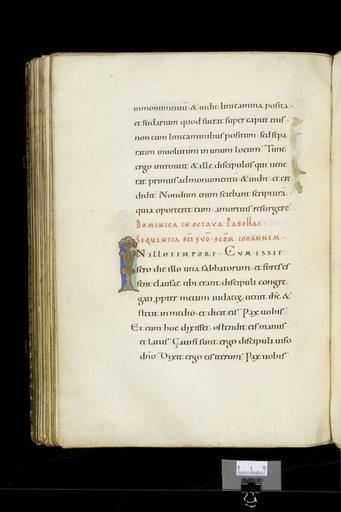 inmonumentū · & uidit linteamina posita ·
et sudarium quod fuerat super caput eius ·
non cum linteaminibus positum · sed sepa
ratim inuolutum in unum locum · Tunc
ergo introiuit & ille discipulus qui uene
rat primus ad monumentū · & uidit · et cre
didit · Nondum enim sciebant scriptura
quia oporteret eum · amortuis resurgere ·
DOMINICA IN OCTAVA PASCHAE ·
SEQUENTIA SCI EVG · SCDM IOHANNEM ·
IN ILLO TEMPORE · CUM ESSET
sero die illo una sabbatorum · et fores es
sent clausae · ubi erant discipuli congre
gati ppter metum iudaeoꝝ · uenit ihc &
stetit in medio · et dicit eis · Pax uobis ·
Et cum hoc dixisset · ostendit eis manus
et latus · Gauisi sunt ergo discipuli uiso
dnō · Dixit ergo eis iterum · Pax uobis ·